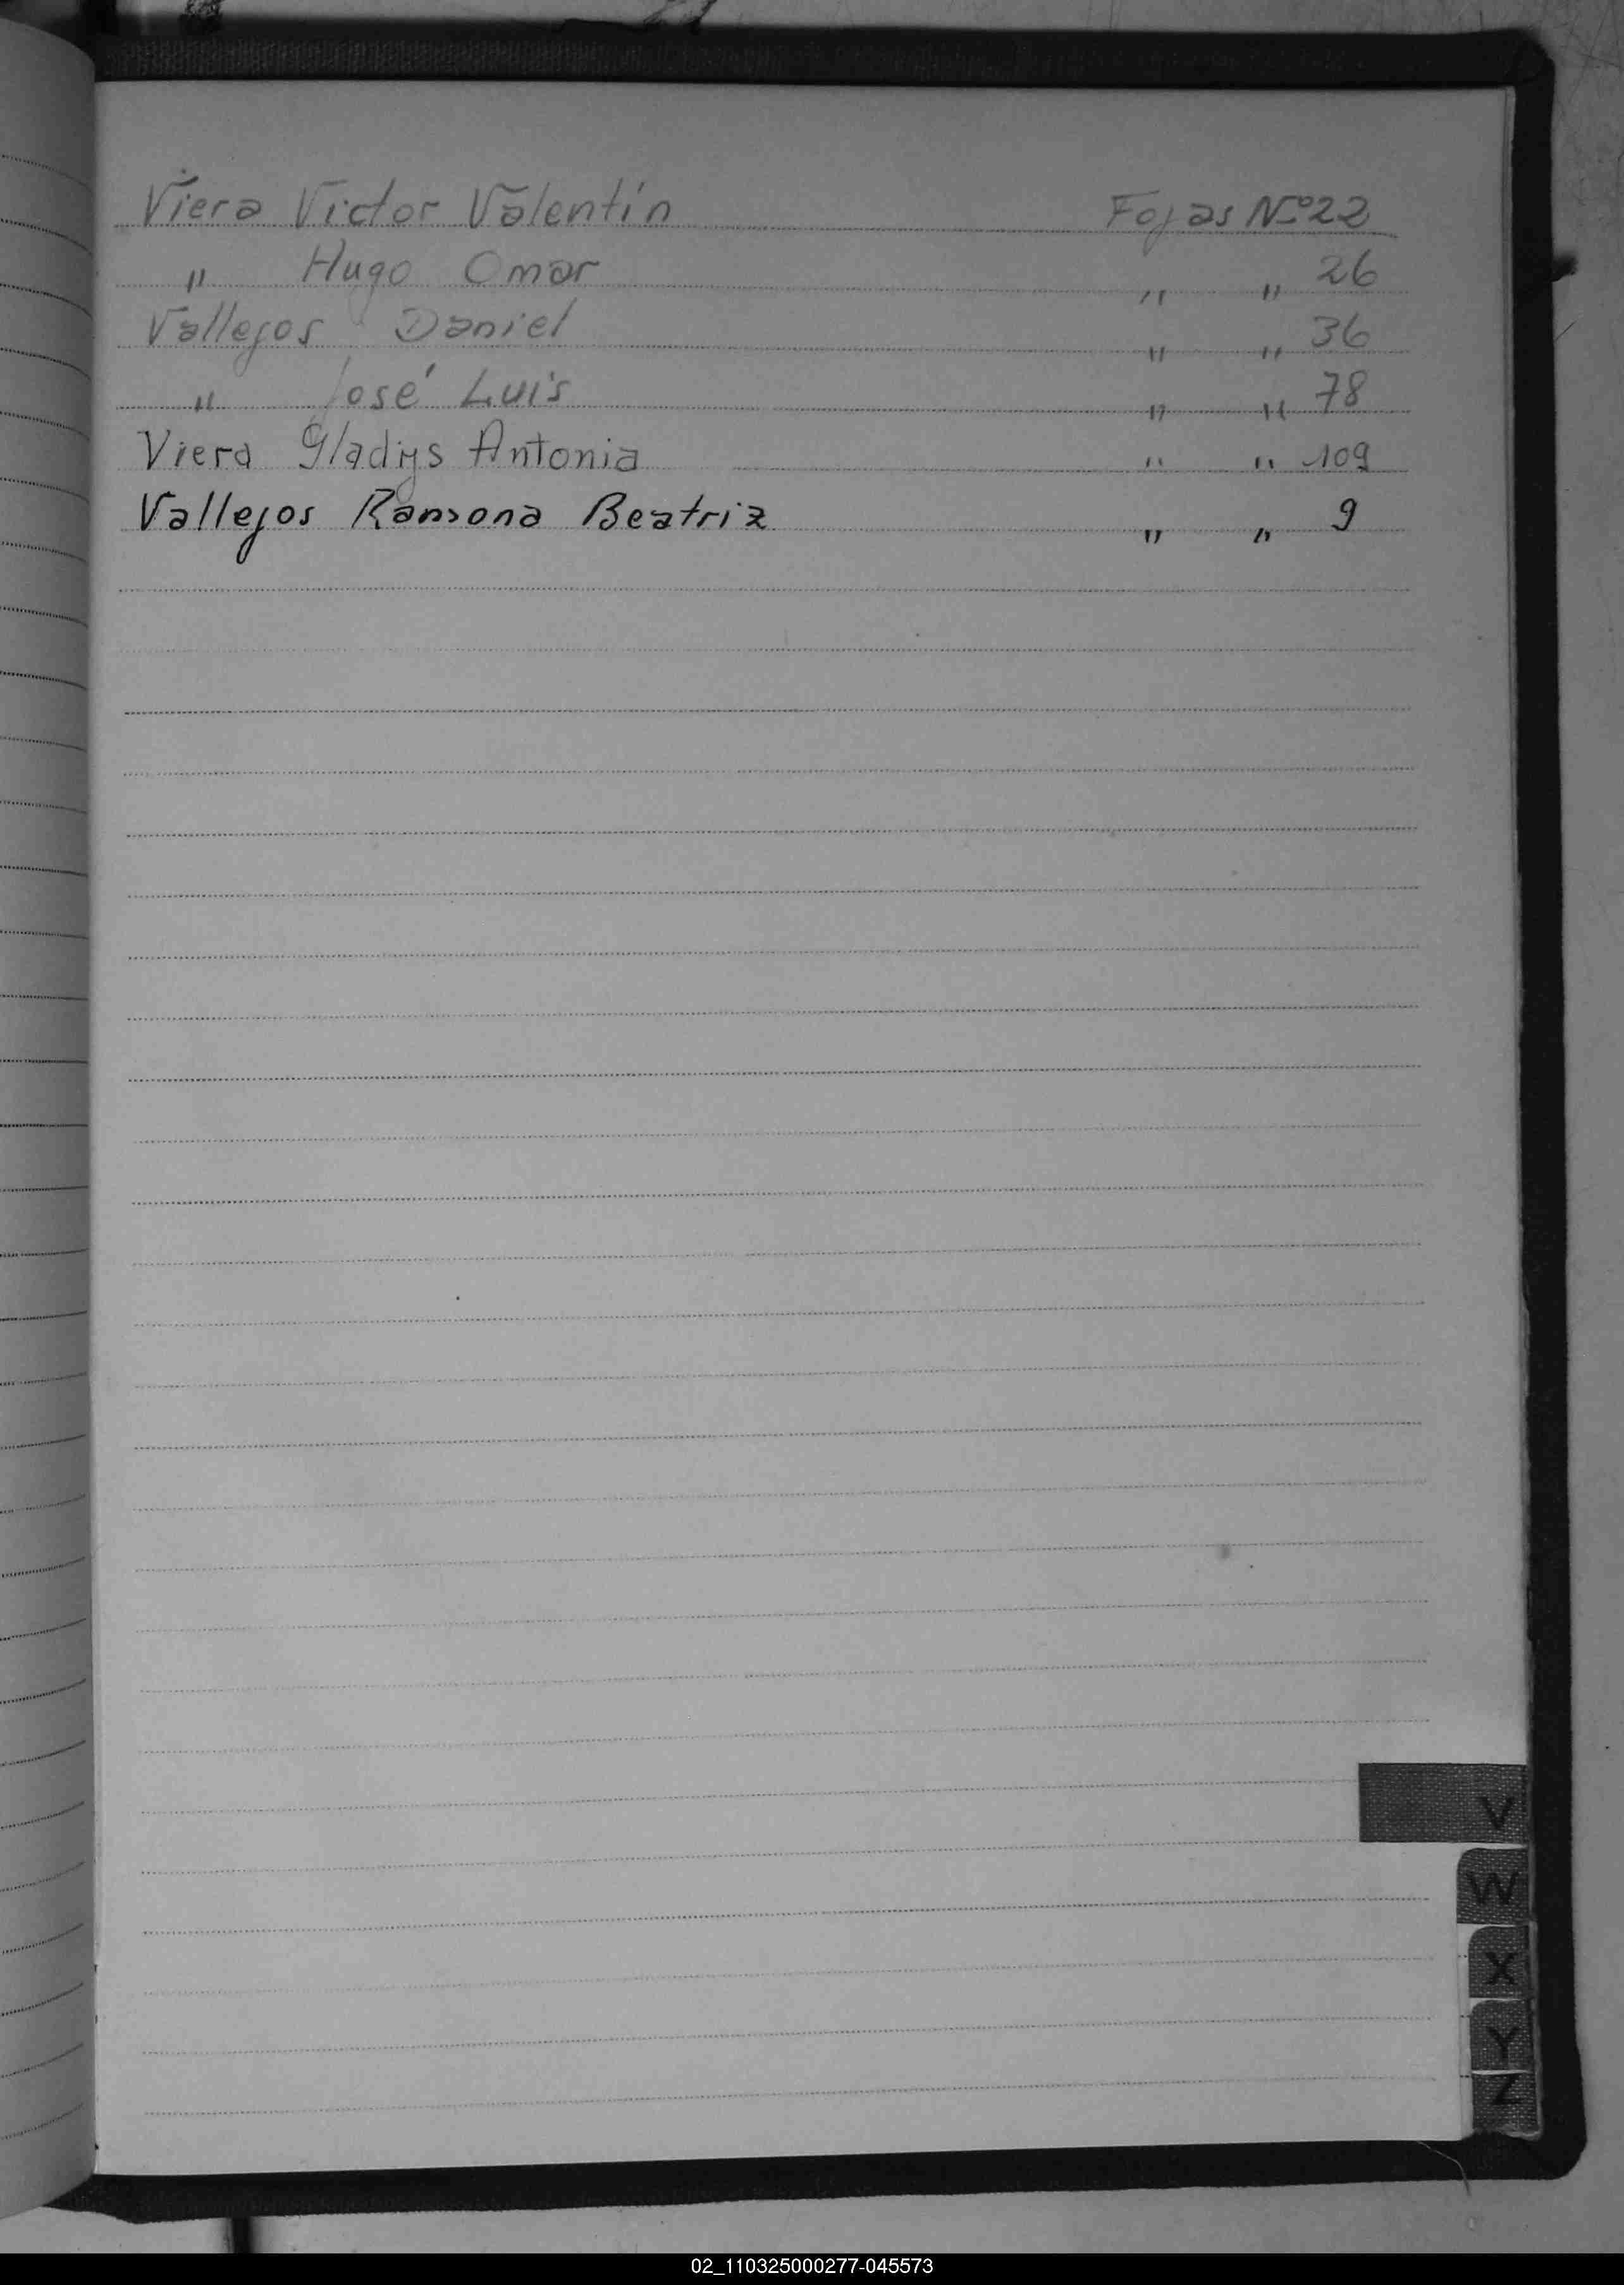 Viera Victor Valentín Fojas Nº 22
" Hugo Omar " " 26
Vallejos Daniel " " 36
" José Luis " " 78
Viera Gladys Antonia " " 109
Vallejos Ramona Beatriz " " 9
V
W
X
Y
Z
02_110325000277-045573